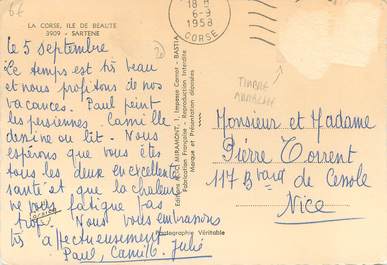 LA CORSE, ILE DE BEAUTE
3909 - SARTENE
le 5 septembre
Le temps est très beau
et nous profitons de nos
vacances. Paul peint
les persiennes. Camille
dessine ou lit. Nous
espérons que vous êtes
tous les deux en excellente
santé et que la chaleur
ne vous fatigue pas
trop. Nous vous embrassons
très affectueusement
Paul, Camille, Julie
Editions MIRAMONT, 1, Impasse Carnot - BASTIA
Fabrication Française - Reproduction Interdite
Marque et Présentation déposées
Photographie Véritable
18 H
6-9
1958
CORSE
TIMBRE
Monsieur et Madame
Pierre Torrent
117 Bvard de Cessole
Nice